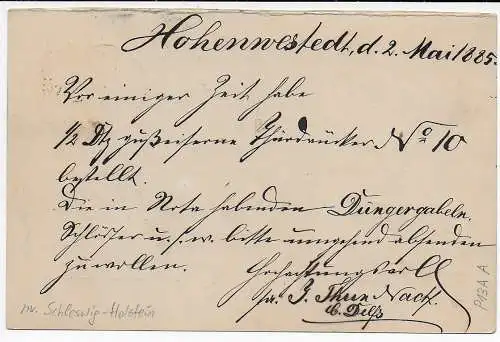 Hohenwestedt, d. 2. Mai 1885.
Vor einiger Zeit habe
1/2 Dtz gußeiserne Thürdrücker No 10
bestellt.
Die in Nota habenden Düngergabeln,
Schlösser u. s. w. bitte umgehend absenden
zu wollen.
Hochachtungsvoll
J. Thun Nachf.
C. Delfs
nv. Schleswig-Holstein
P13A A